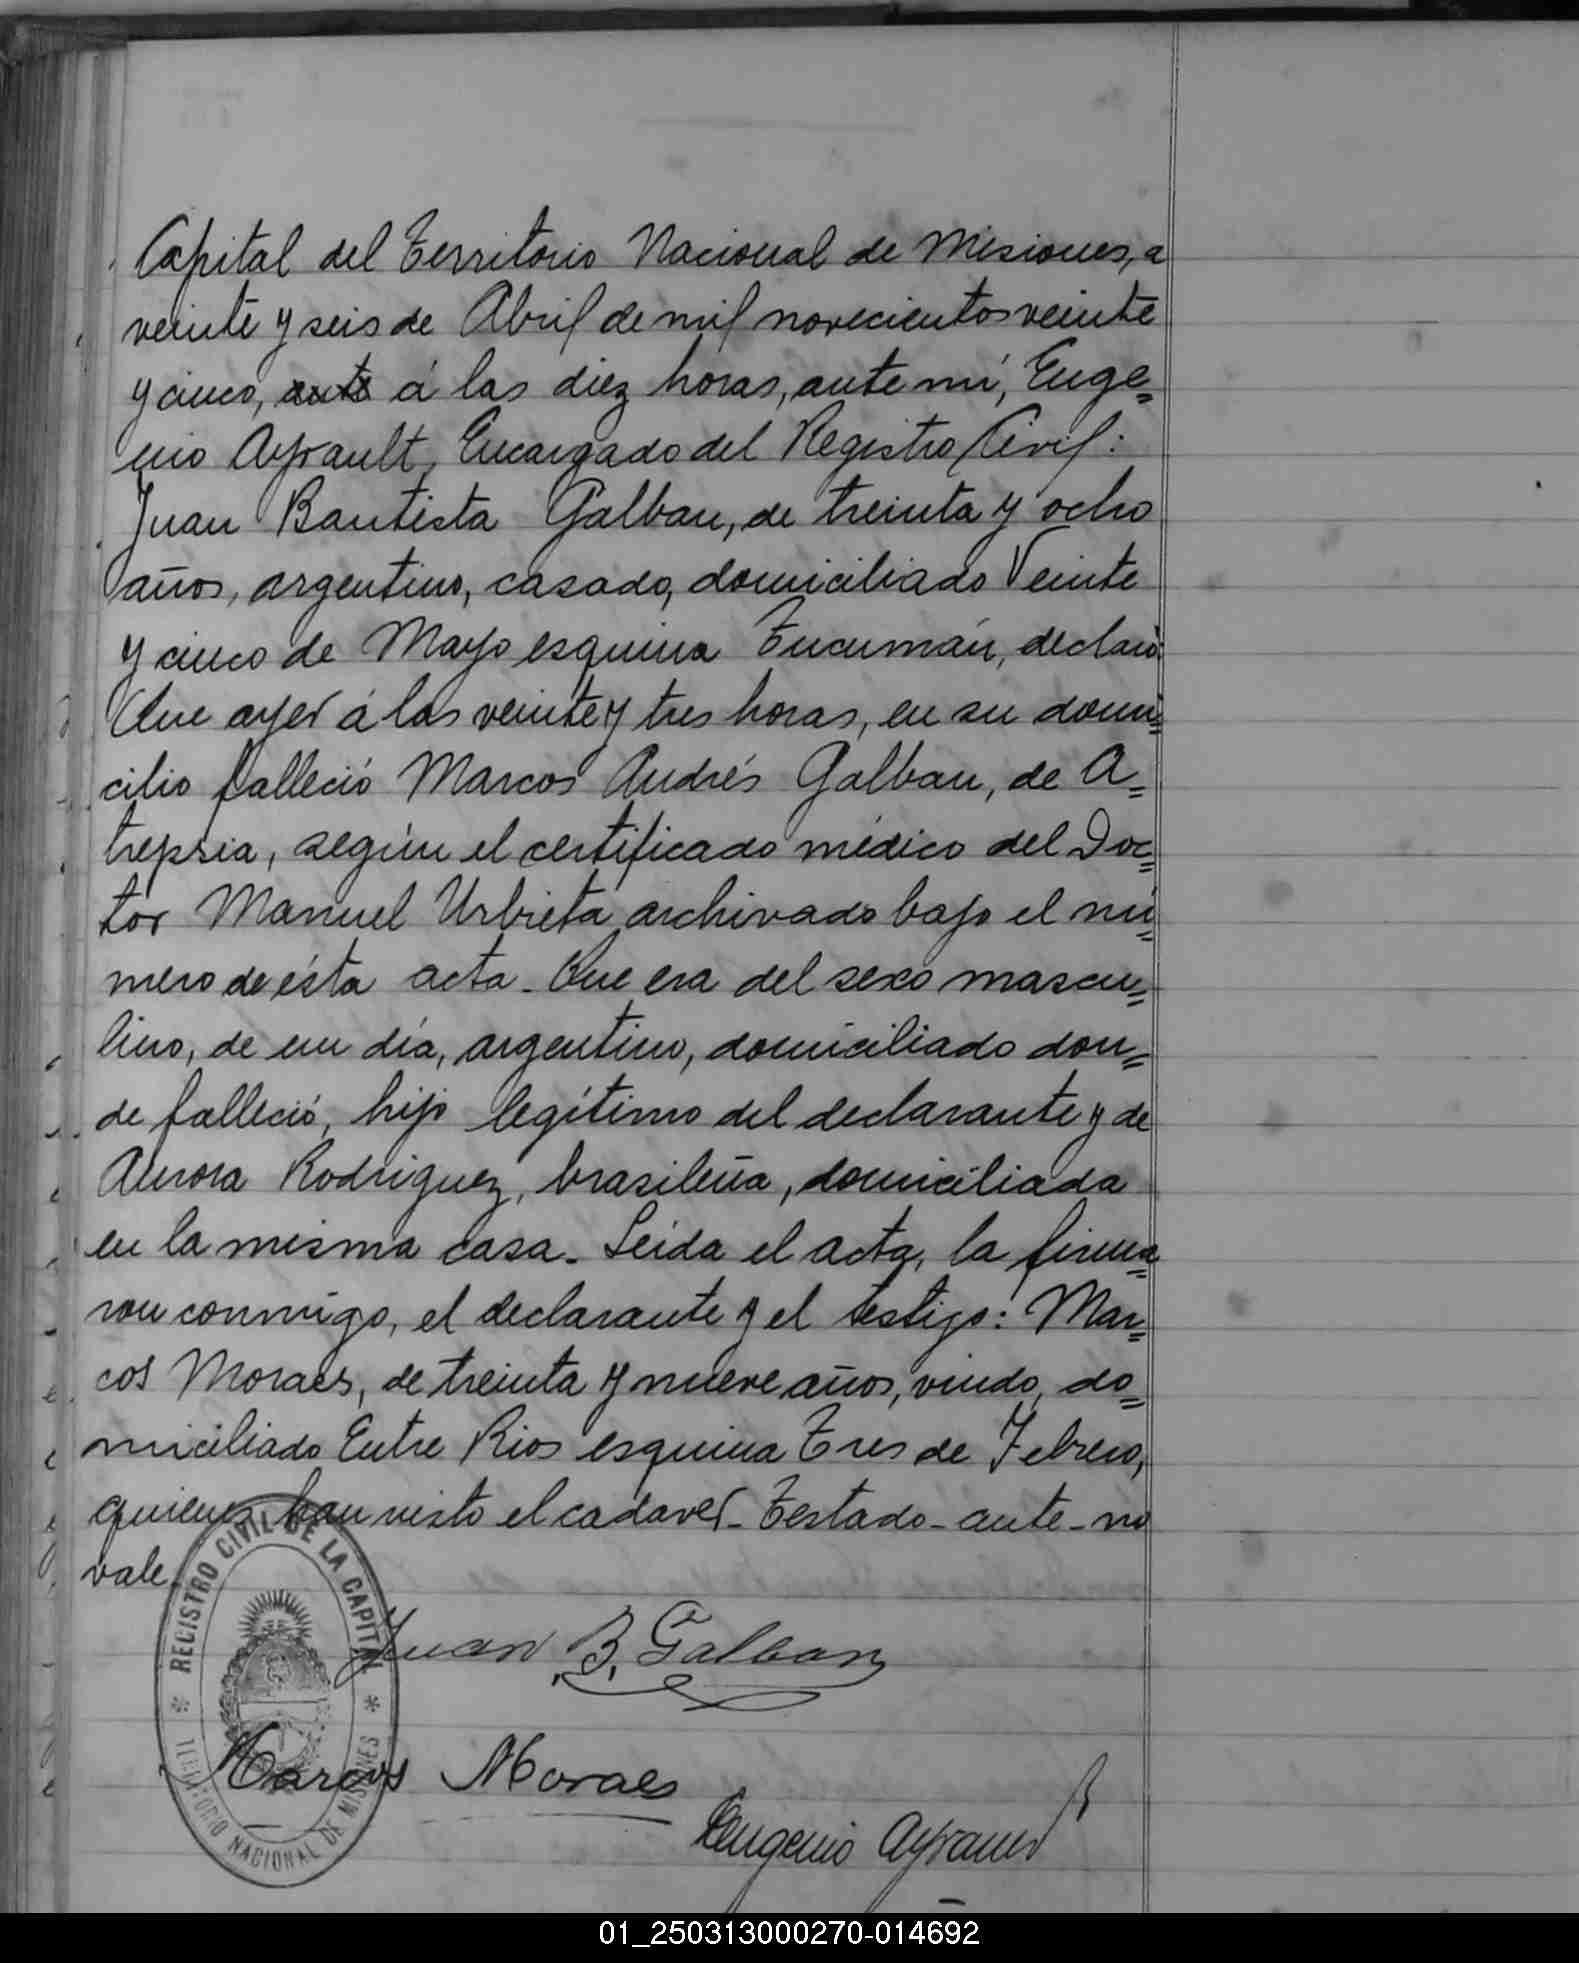 Capital del Territorio Nacional de Misiones, a
veinte y seis de Abril de mil novecientos veinte
y cinco, ante á las diez horas, ante mí, Euge=
nio Ayrault, Encargado del Registro Civil:
Juan Bautista Galban, de treinta y ocho
años, argentino, casado, domiciliado Veinte
y cinco de Mayo esquina Tucumán, declaró:
Que ayer á las veinte y tres horas, en su domi=
cilio falleció Marcos Andrés Galban, de A=
trepsia, según el certificado médico del Doc=
tor Manuel Urbieta archivado bajo el nú=
mero de ésta acta. Que era del sexo mascu=
lino, de un día, argentino, domiciliado don=
de falleció, hijo legítimo del declarante y de
Aurora Rodriguez, brasileña, domiciliada
en la misma casa. Leída el acta, la firma=
ron conmigo, el declarante y el testigo: Mar=
cos Moraes, de treinta y nueve años, viudo, do=
miciliado Entre Rios esquina Tres de Febrero,
quienes han visto el cadaver. Testado - ante - no
vale.
REGISTRO CIVIL DE LA CAPITAL
Juan B. Galban
Marcos Moraes
TERRITORIO NACIONAL DE MISIONES
Eugenio Ayrault
01_250313000270-014692